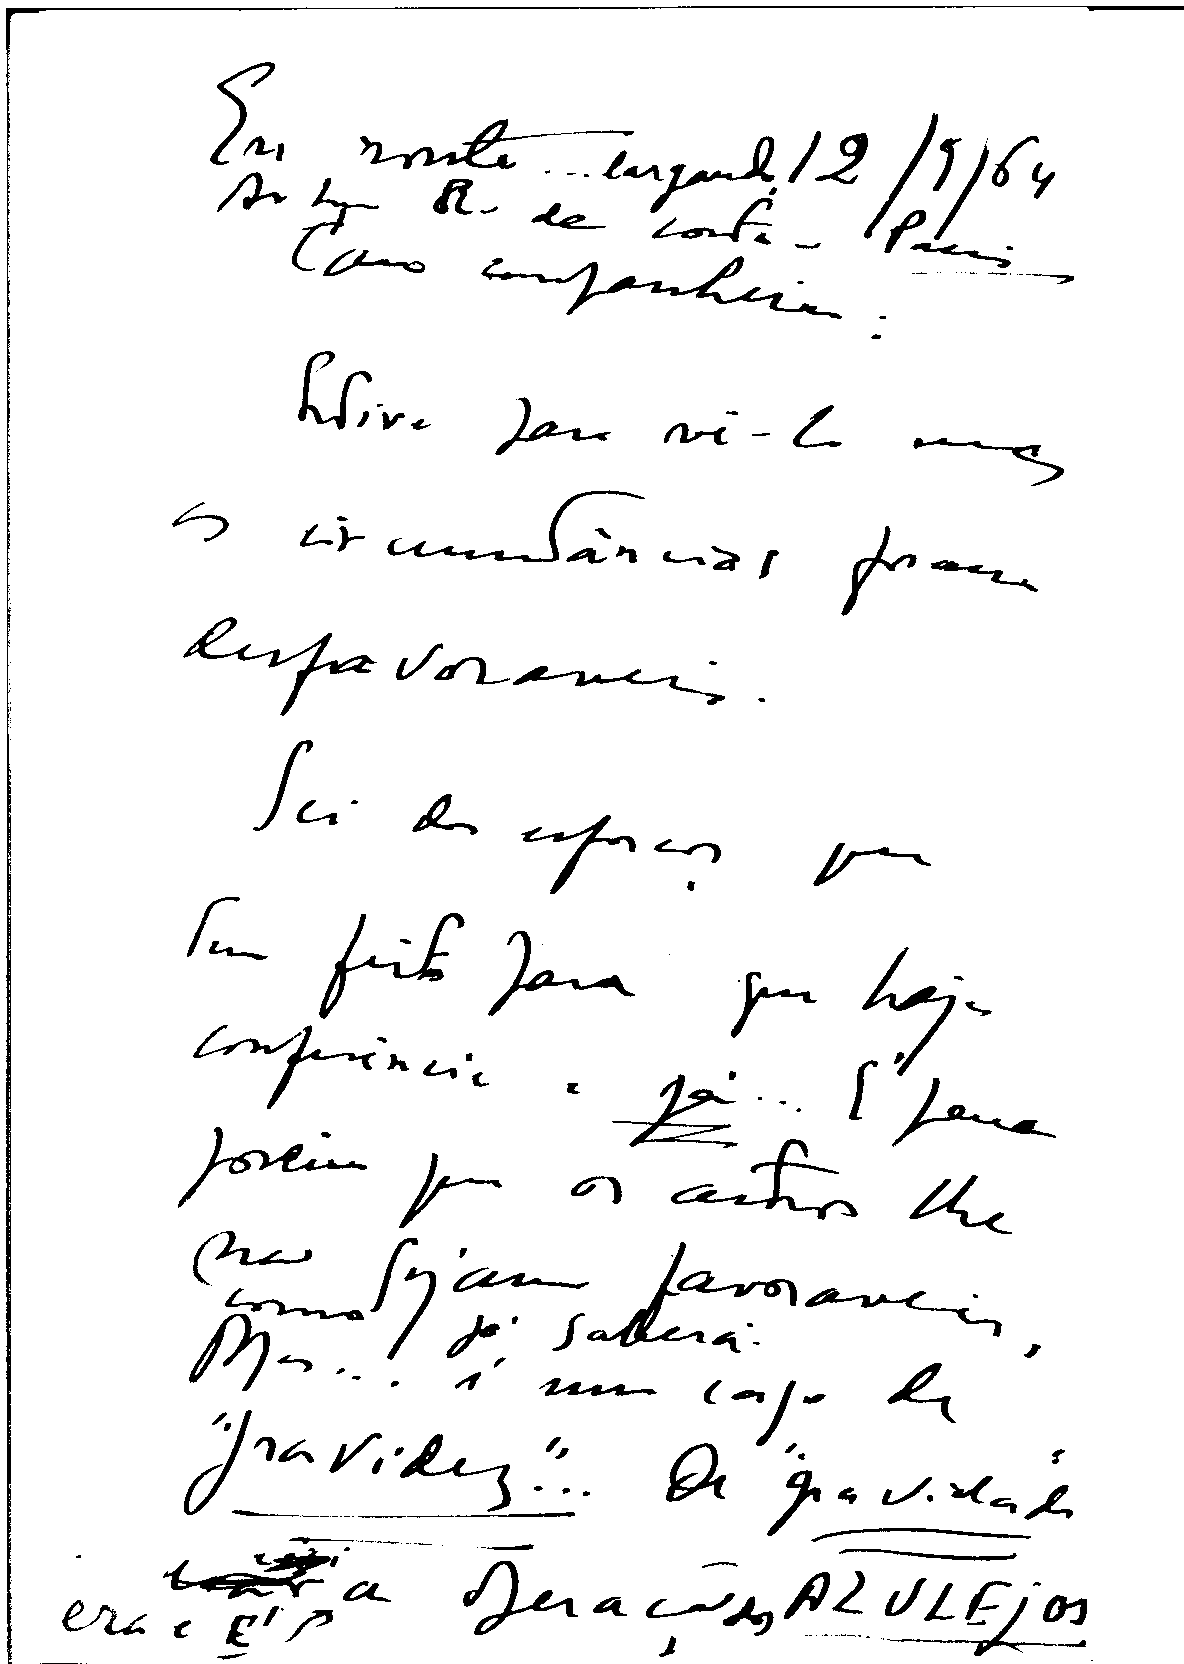 Em monte... largando, 12/9/64
R. da Costa - Paris
Caro companheiro:
Estive para vê-lo mas
as circumstâncias foram
desfavoraveis.
Sei dos esforços que
tem feito para que haja
conferência e já... É pena
porém que os astros lhe
não sejam favoraveis,
como já saberá.
Mas... é um caso de
"gravidez"... De "gravidade"
era e É a operação dos AZULEJOS